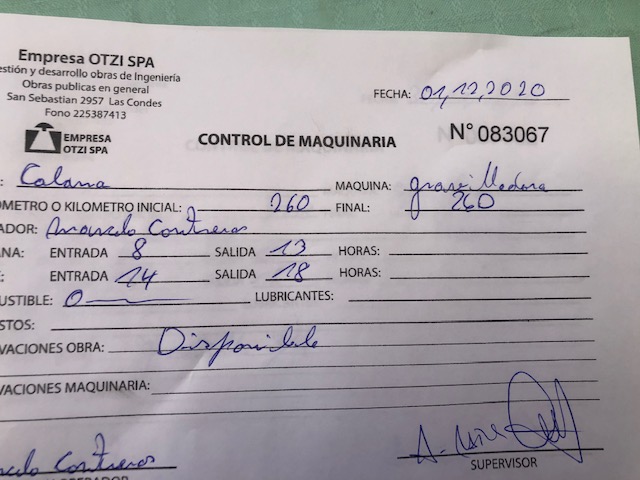 Empresa OTZI SPA
estión y desarrollo obras de Ingenieria
Obras publicas en general
San Sebastian 2957 Las Condes
Fono 225387413
EMPRESA
OTZI SPA
FECHA: 01,12,2020
CONTROL DE MAQUINARIA
N° 083067
: Calama MAQUINA:
OMETRO O KILOMETRO INICIAL: 260 FINAL: 260
ADOR: Contreras
ANA: ENTRADA 8 SALIDA 13 HORAS:
: ENTRADA 14 SALIDA 18 HORAS:
USTIBLE: 0 LUBRICANTES:
STOS:
VACIONES OBRA: Disponible
VACIONES MAQUINARIA:
Contreras
OPERADOR
SUPERVISOR